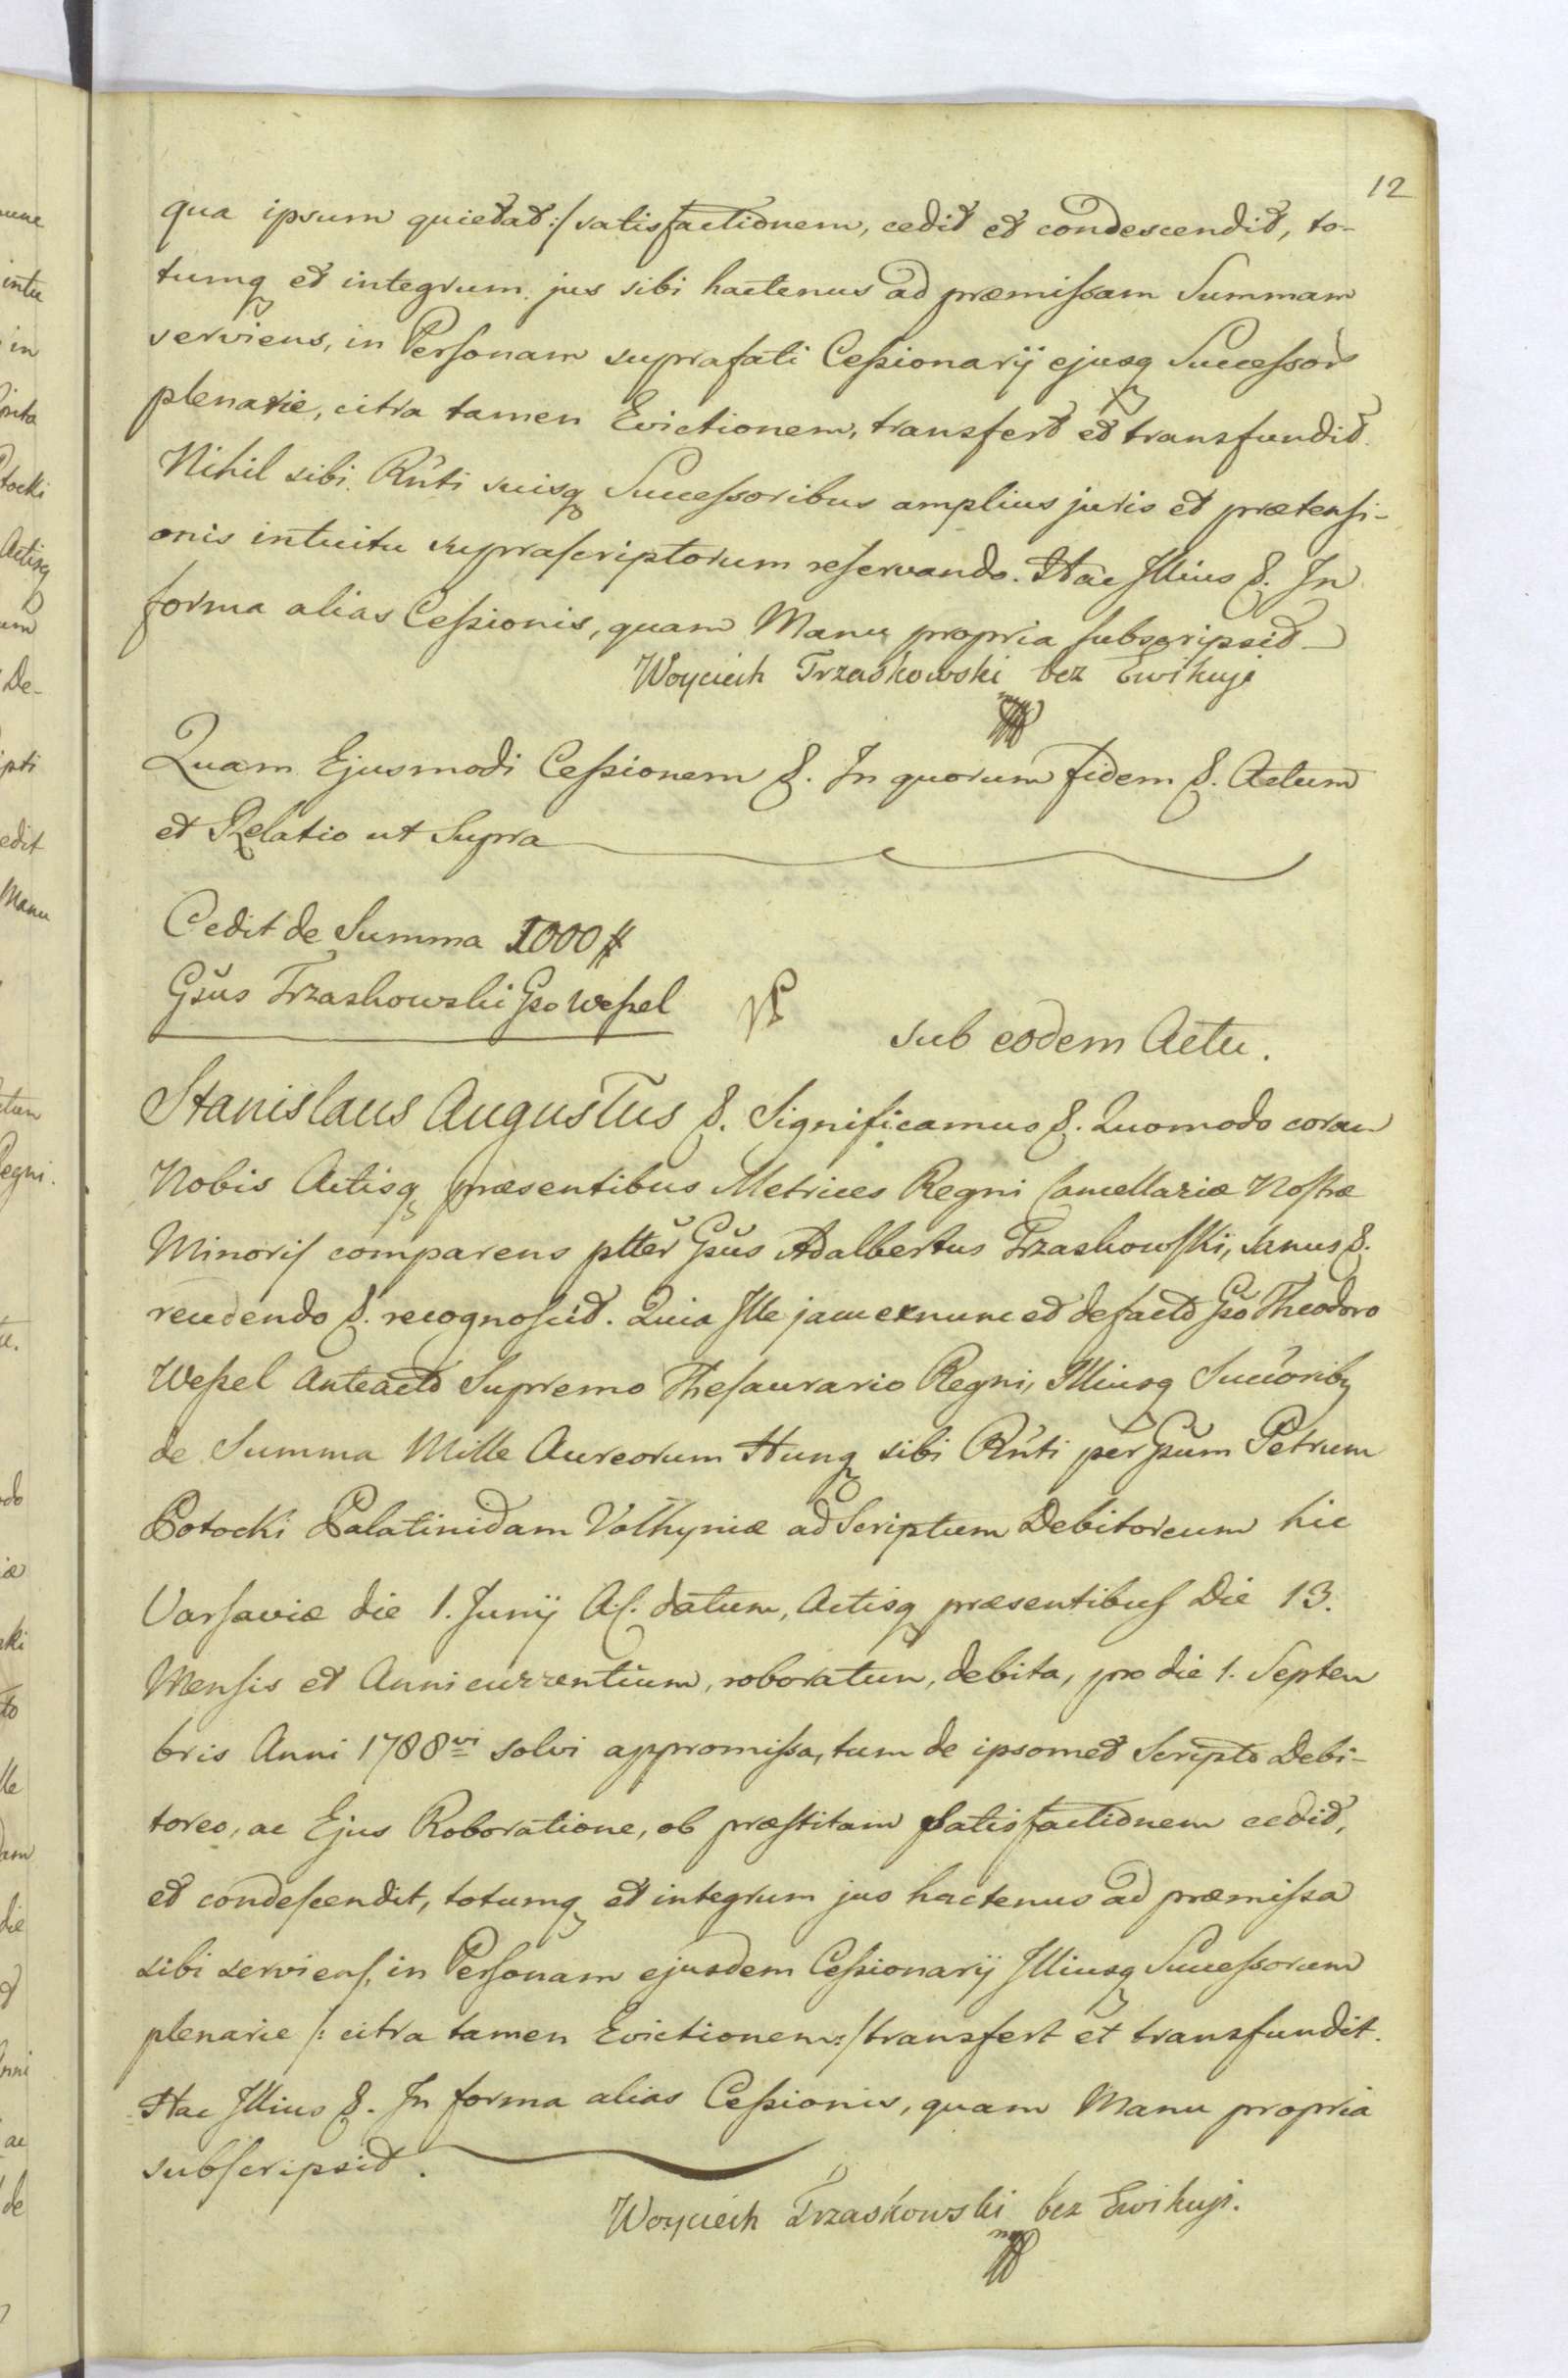 12
qua ipsum quietat :/ satisfactionem, cedit et condescendit, to-
tumq et integrum jus sibi hactenus ad præmissam Summam
serviens, in Personam suprafati Cessionarij ejusq Successor
plenarie, citra tamen Evictionem, transfert et transfundit.
Nihil sibi Rnti suisq Successoribus amplius juris et prætensi-
onis intuitu suprascriptorum reservando. Hac Illius &. In
forma alias Cessionis, quam Manu propria subscripsit
Woyciech Trzaskowski bez Ewikcyi
mp
Quam Ejusmodi Cessionem &. In quorum fidem &. Actum
et Relatio ut Supra
Cedit de Summa 1000 #
Gsus Trzaskowski Gso Wessel
sub eodem Actu.
Stanislaus Augustus &. Significamus &. Quomodo coram
Nobis Actisq præsentibus Metrices Regni Cancellariæ Nostræ
Minoris comparens pltter Gsus Adalbertus Trzaskowski, sanus &.
reudendo &. recognoscit. Quia Ille jam exnunc et defacto Gso Theodoro
Wessel Anteacto Supremo Thesaurario Regni, Illiusq Succoribq
de Summa Mille Aureorum Hung sibi Rnti per Gsum Petrum
Potocki Palatinidam Volhyniæ ad Scriptum Debitoreum hic
Varsaviæ die 1. Junij A. C. datum, Actisq præsentibus Die 13.
Mensis et Anni currentium, roboratum, debita, pro die 1. Septem
bris Anni 1788vi solvi appromissa, tum de ipsomet Scripto Debi-
toreo, ac Ejus Roboratione, ob præstitam Satisfactionem cedit,
et condescendit, totumq et integrum jus hactenus ad præmissa
sibi serviens, in Personam ejusdem Cessionarij Illiusq Successorum
plenarie /: citra tamen Evictionem :/ transfert et transfundit.
Hac Illius &. In forma alias Cessionis, quam Manu propria
subscripsit.
Woyciech Trzaskowski bez Ewikcyi.
mp